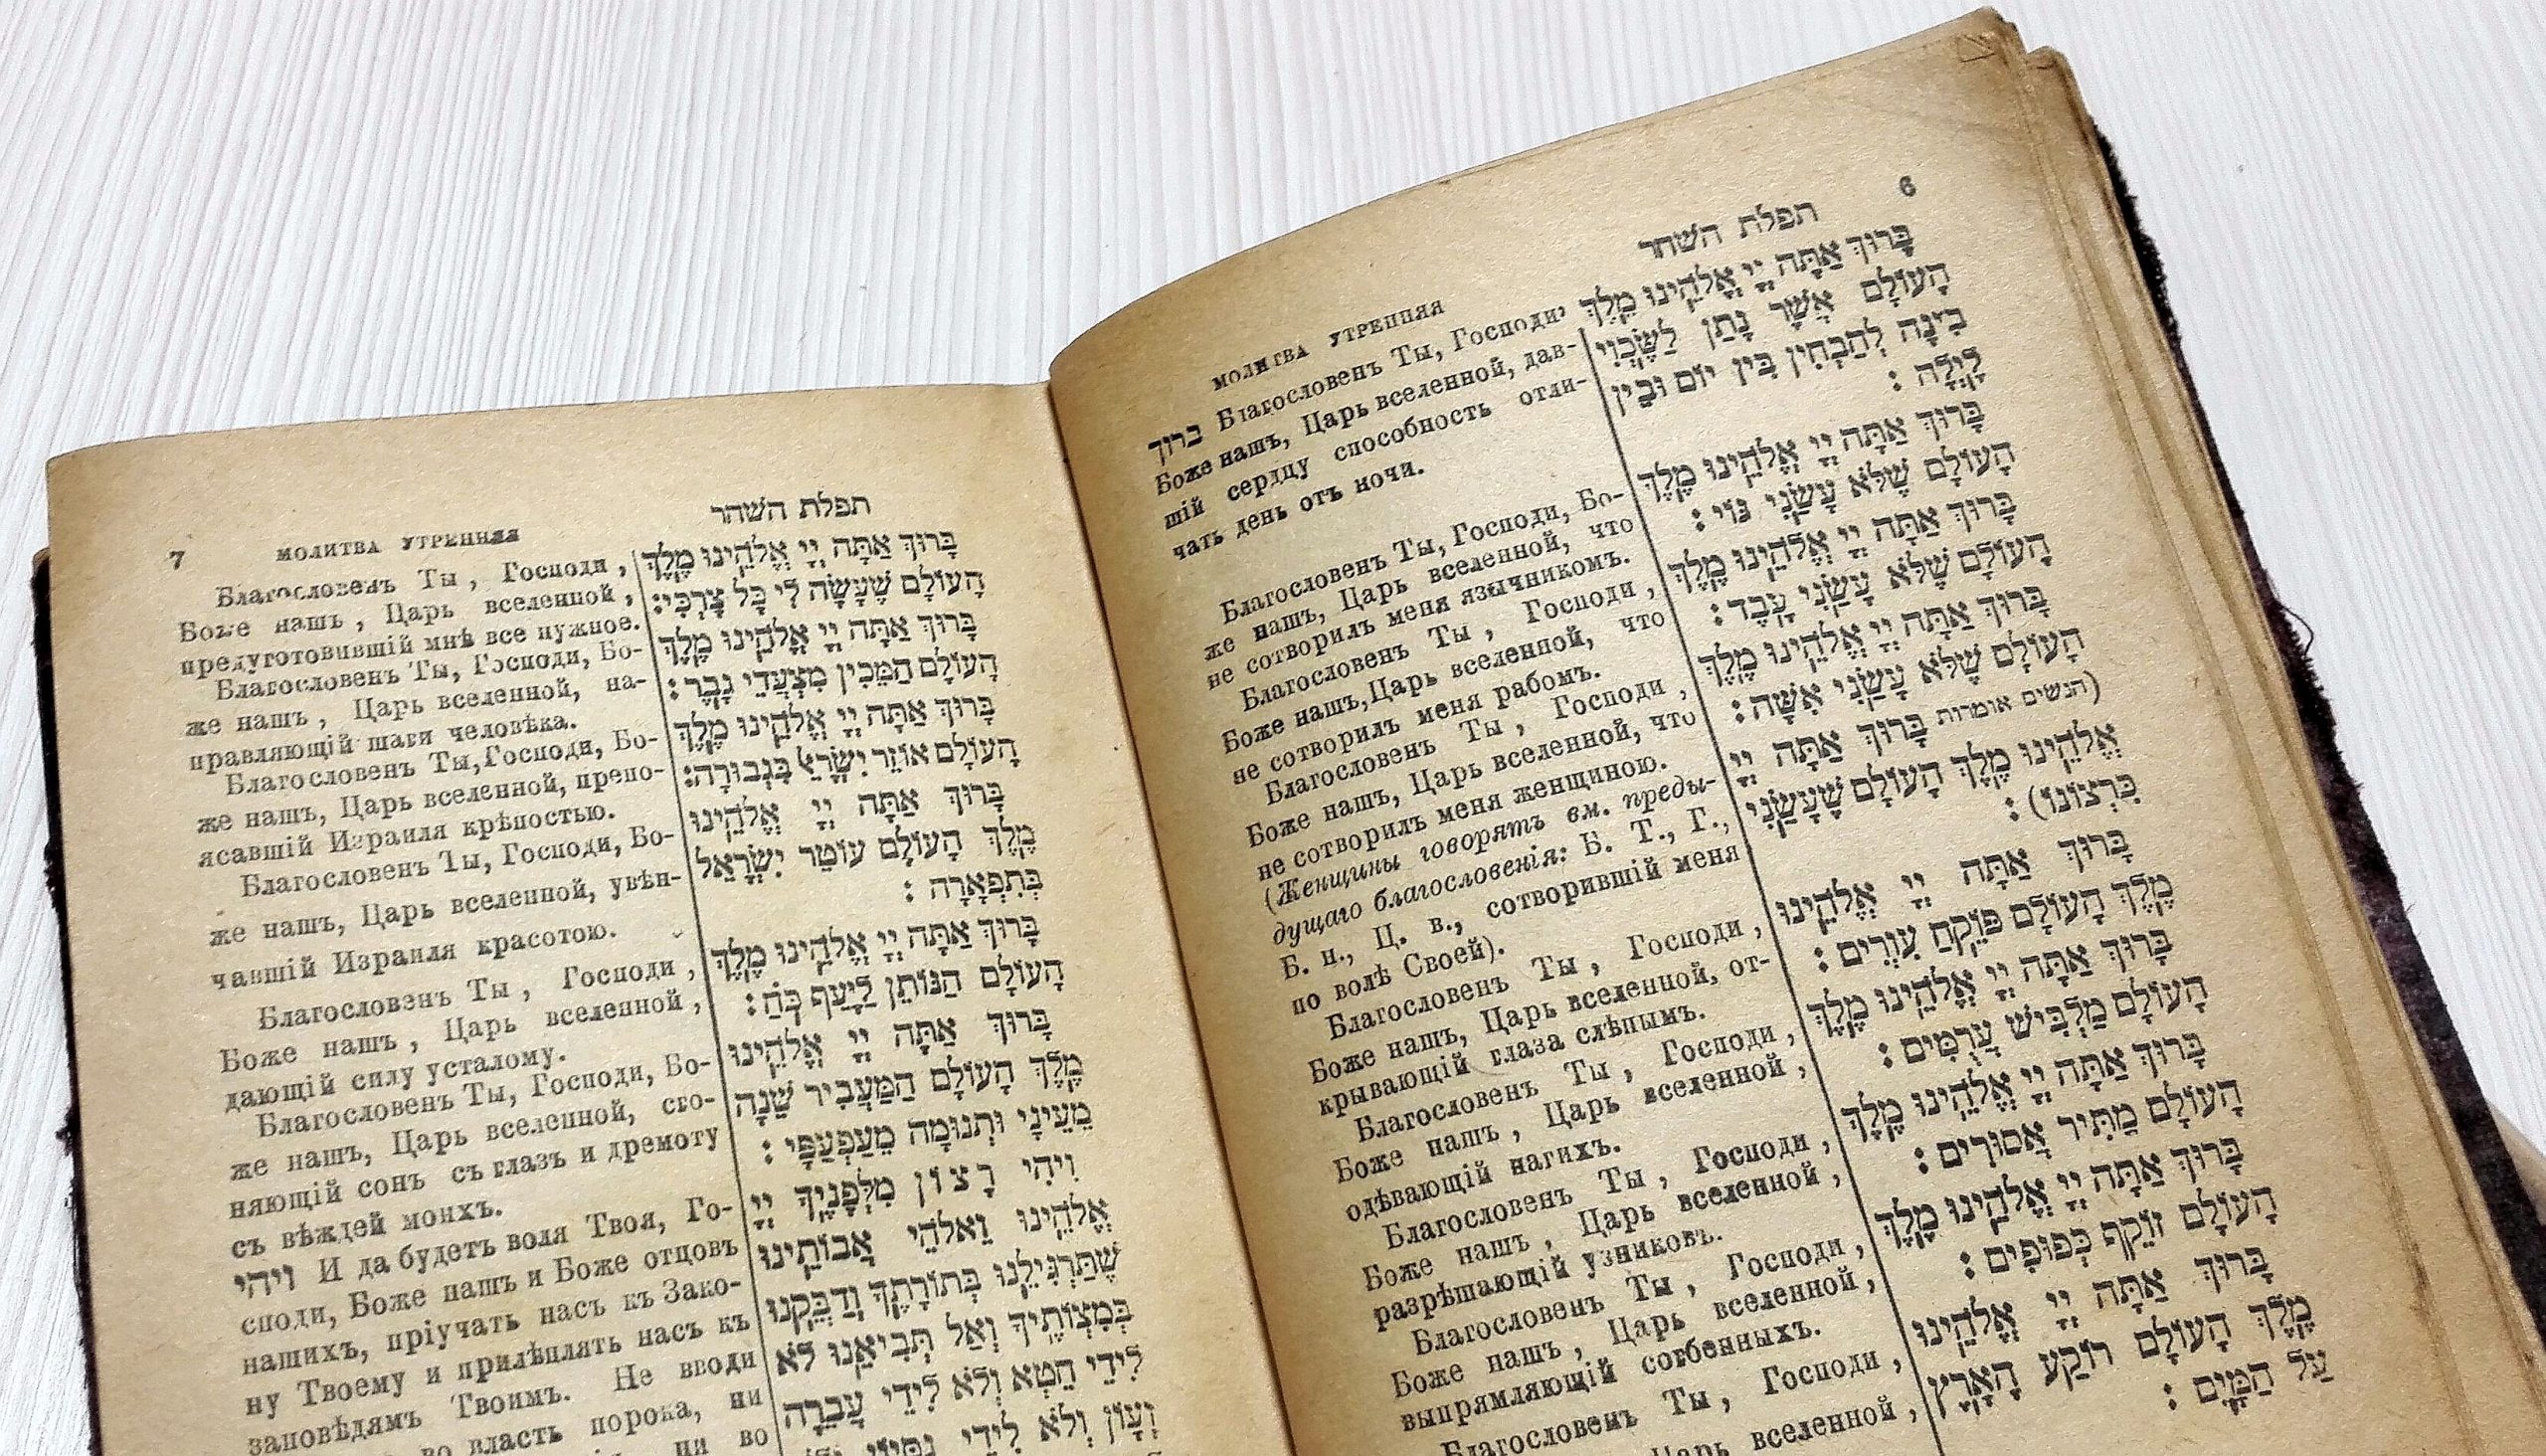 6
תפלת השחר
בָּרוּךְ אַתָּה יְיָ אֱלֹהֵינוּ מֶלֶךְ
הָעוֹלָם אֲשֶׁר נָתַן לַשֶּׂכְוִי
בִינָה לְהַבְחִין בֵּין יוֹם וּבֵין
לָיְלָה :
בָּרוּךְ אַתָּה יְיָ אֱלֹהֵינוּ מֶלֶךְ
הָעוֹלָם שֶׁלֹּא עָשַׂנִי גּוֹי :
בָּרוּךְ אַתָּה יְיָ אֱלֹהֵינוּ מֶלֶךְ
הָעוֹלָם שֶׁלֹּא עָשַׂנִי עָבֶד :
בָּרוּךְ אַתָּה יְיָ אֱלֹהֵינוּ מֶלֶךְ
הָעוֹלָם שֶׁלֹּא עָשַׂנִי אִשָּׁה :
(הנשים אומרות בָּרוּךְ אַתָּה יְיָ
אֱלֹהֵינוּ מֶלֶךְ הָעוֹלָם שֶׁעָשַׂנִי
כִּרְצוֹנוֹ) :
בָּרוּךְ אַתָּה יְיָ אֱלֹהֵינוּ
מֶלֶךְ הָעוֹלָם פּוֹקֵחַ עִוְרִים :
בָּרוּךְ אַתָּה יְיָ אֱלֹהֵינוּ מֶלֶךְ
הָעוֹלָם מַלְבִּישׁ עֲרֻמִּים :
בָּרוּךְ אַתָּה יְיָ אֱלֹהֵינוּ מֶלֶךְ
הָעוֹלָם מַתִּיר אֲסוּרִים :
בָּרוּךְ אַתָּה יְיָ אֱלֹהֵינוּ מֶלֶךְ
הָעוֹלָם זוֹקֵף כְּפוּפִים :
בָּרוּךְ אַתָּה יְיָ אֱלֹהֵינוּ
מֶלֶךְ הָעוֹלָם רוֹקַע הָאָרֶץ
עַל הַמָּיִם :
МОЛИТВА УТРЕННЯЯ
ברוך Благословенъ Ты, Господи,
Боже нашъ, Царь вселенной, дав-
шій сердцу способность отли-
чать день отъ ночи.
Благословенъ Ты, Господи, Бо-
же нашъ, Царь вселенной, что
не сотворилъ меня язычникомъ.
Благословенъ Ты, Господи,
Боже нашъ, Царь вселенной, что
не сотворилъ меня рабомъ.
Благословенъ Ты, Господи,
Боже нашъ, Царь вселенной, что
не сотворилъ меня женщиною.
(Женщины говорятъ вм. преды-
дущаго благословенія: Б. Т., Г.,
Б. н., Ц. в., сотворившій меня
по волѣ Своей).
Благословенъ Ты, Господи,
Боже нашъ, Царь вселенной, от-
крывающій глаза слѣпымъ.
Благословенъ Ты, Господи,
Боже нашъ, Царь вселенной,
одѣвающій нагихъ.
Благословенъ Ты, Господи,
Боже нашъ, Царь вселенной,
разрѣшающій узниковъ.
Благословенъ Ты, Господи,
Боже нашъ, Царь вселенной,
выпрямляющій согбенныхъ.
Благословенъ Ты, Господи,
Царь вселенной,
תפלת השחר
בָּרוּךְ אַתָּה יְיָ אֱלֹהֵינוּ מֶלֶךְ
הָעוֹלָם שֶׁעָשָׂה לִּי כָּל צָרְכִּי:
בָּרוּךְ אַתָּה יְיָ אֱלֹהֵינוּ מֶלֶךְ
הָעוֹלָם הַמֵּכִין מִצְעֲדֵי גָבֶר :
בָּרוּךְ אַתָּה יְיָ אֱלֹהֵינוּ מֶלֶךְ
הָעוֹלָם אוֹזֵר יִשְׂרָאֵל בִּגְבוּרָה:
בָּרוּךְ אַתָּה יְיָ אֱלֹהֵינוּ
מֶלֶךְ הָעוֹלָם עוֹטֵר יִשְׂרָאֵל
בְּתִפְאָרָה :
בָּרוּךְ אַתָּה יְיָ אֱלֹהֵינוּ מֶלֶךְ
הָעוֹלָם הַנּוֹתֵן לַיָּעֵף כֹּחַ :
בָּרוּךְ אַתָּה יְיָ אֱלֹהֵינוּ
מֶלֶךְ הָעוֹלָם הַמַּעֲבִיר שֵׁנָה
מֵעֵינָי וּתְנוּמָה מֵעַפְעַפָּי :
וִיהִי רָצוֹן מִלְּפָנֶיךָ יְיָ
אֱלֹהֵינוּ וֵאלֹהֵי אֲבוֹתֵינוּ
שֶׁתַּרְגִּילֵנוּ בְּתוֹרָתֶךָ וְדַבְּקֵנוּ
בְּמִצְוֹתֶיךָ וְאַל תְּבִיאֵנוּ לֹא
לִידֵי חֵטְא וְלֹא לִידֵי עֲבֵרָה
וְעָוֹן וְלֹא לִידֵי נִסָּיוֹן
7
МОЛИТВА УТРЕННЯЯ
Благословенъ Ты, Господи,
Боже нашъ, Царь вселенной,
предуготовившій мнѣ все нужное.
Благословенъ Ты, Господи, Бо-
же нашъ, Царь вселенной, на-
правляющій шаги человѣка.
Благословенъ Ты, Господи, Бо-
же нашъ, Царь вселенной, препо-
ясавшій Израиля крѣпостью.
Благословенъ Ты, Господи, Бо-
же нашъ, Царь вселенной, увѣн-
чавшій Израиля красотою.
Благословенъ Ты, Господи,
Боже нашъ, Царь вселенной,
дающій силу усталому.
Благословенъ Ты, Господи, Бо-
же нашъ, Царь вселенной, сго-
няющій сонъ съ глазъ и дремоту
съ вѣждей моихъ.
ויהי И да будетъ воля Твоя, Го-
споди, Боже нашъ и Боже отцовъ
нашихъ, пріучать насъ къ Зако-
ну Твоему и прилѣплять насъ къ
заповѣдямъ Твоимъ. Не вводи
во власть порока, ни
ни во